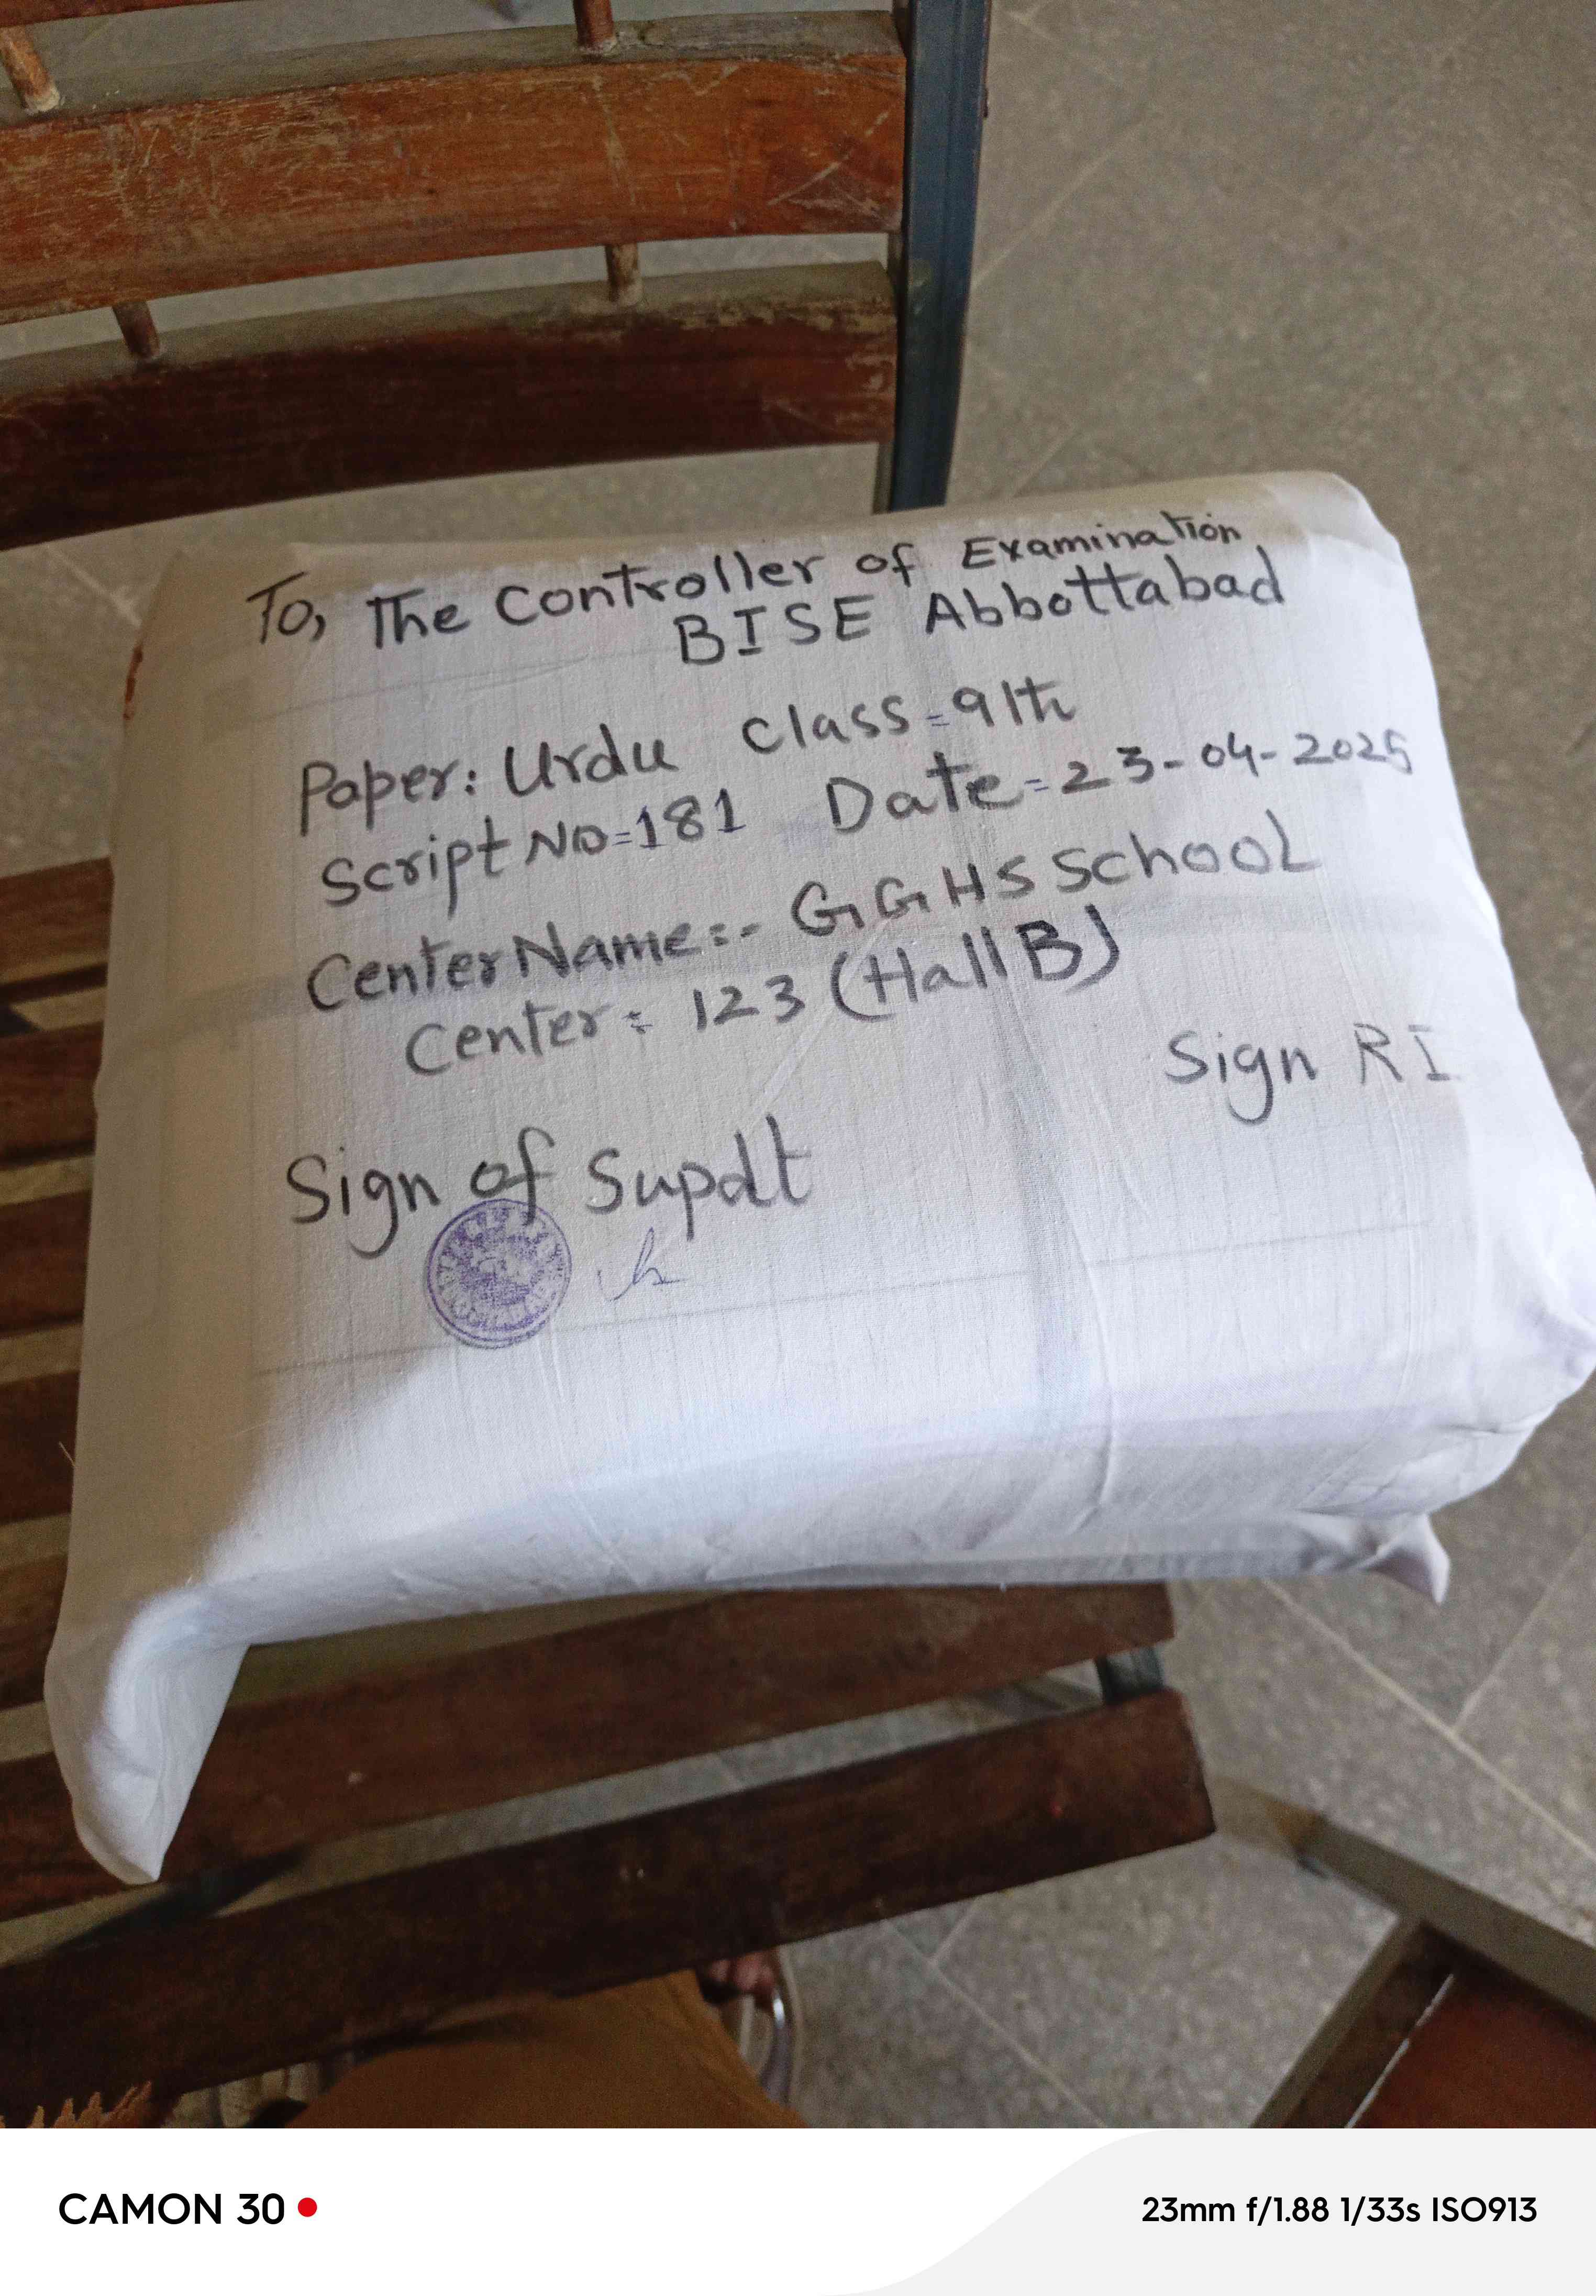 To, The Controller of Examination
BISE Abbottabad
Paper: Urdu class=9th
Script No=181 Date=23-04-2025
Center Name:- GGHS School
Center: 123 (Hall B)
Sign RI
Sign of Supdt
CAMON 30
23mm f/1.88 1/33s ISO913